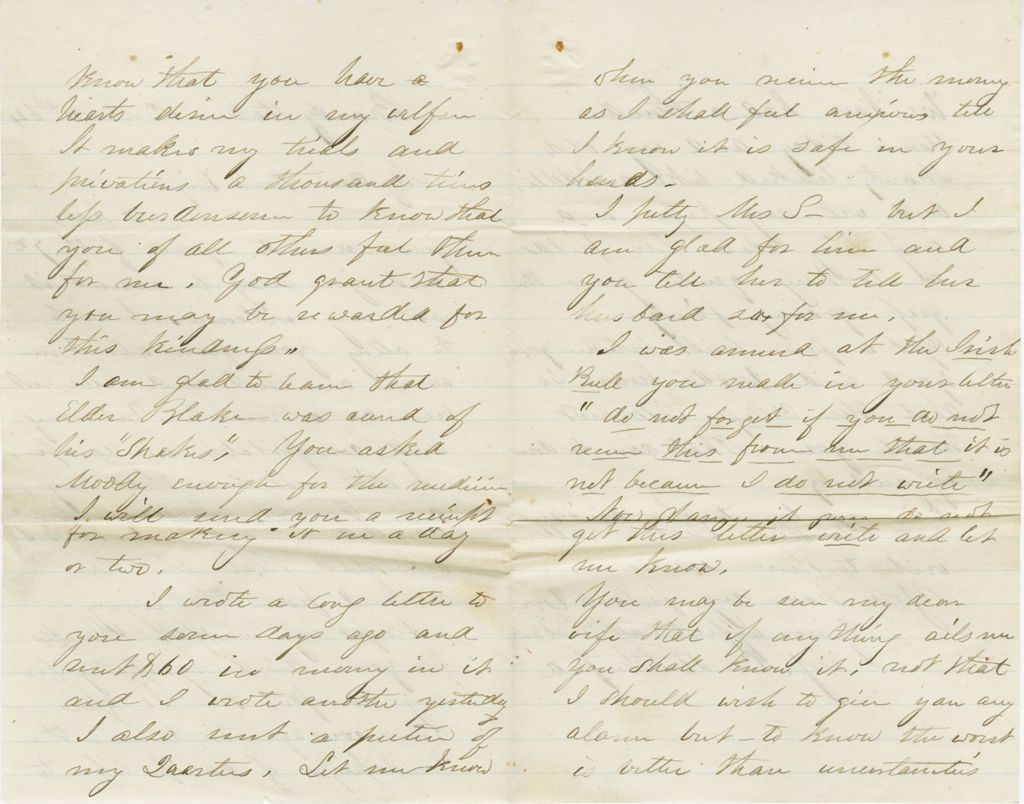 Know that you have a
hearts desire in my welfare
It makes my trials and
privations a thousand times
less burdensome to know that
you of all others feel them
for me. God grant that
you may be rewarded for
this kindness.
I am glad to learn that
Elder Blake was cured of
his "Shakes". You asked
Moody enough for the medicine
I will send you a receipt
for making it in a day
or two.
I wrote a long letter to
you some days ago and
sent $60 in money in it
and I wrote another yesterday
I also sent a picture of
my Quarters. Let me know
when you receive the money
as I shall feel anxious till
I know it is safe in your
hands.
I pitty Mrs S— but I
am glad for him and
you tell her to tell her
husband so for me.
I was amused at the Irish
Bull you made in your letter
"do not forget if you do not
receive this from me that it is
not because I do not write"
Now if you do not
get this letter write and let
me know.
You may be sure my dear
wife that if any thing ails me
you shall know it, not that
I should wish to give you any
alarm but to know the worst
is better than uncertainties